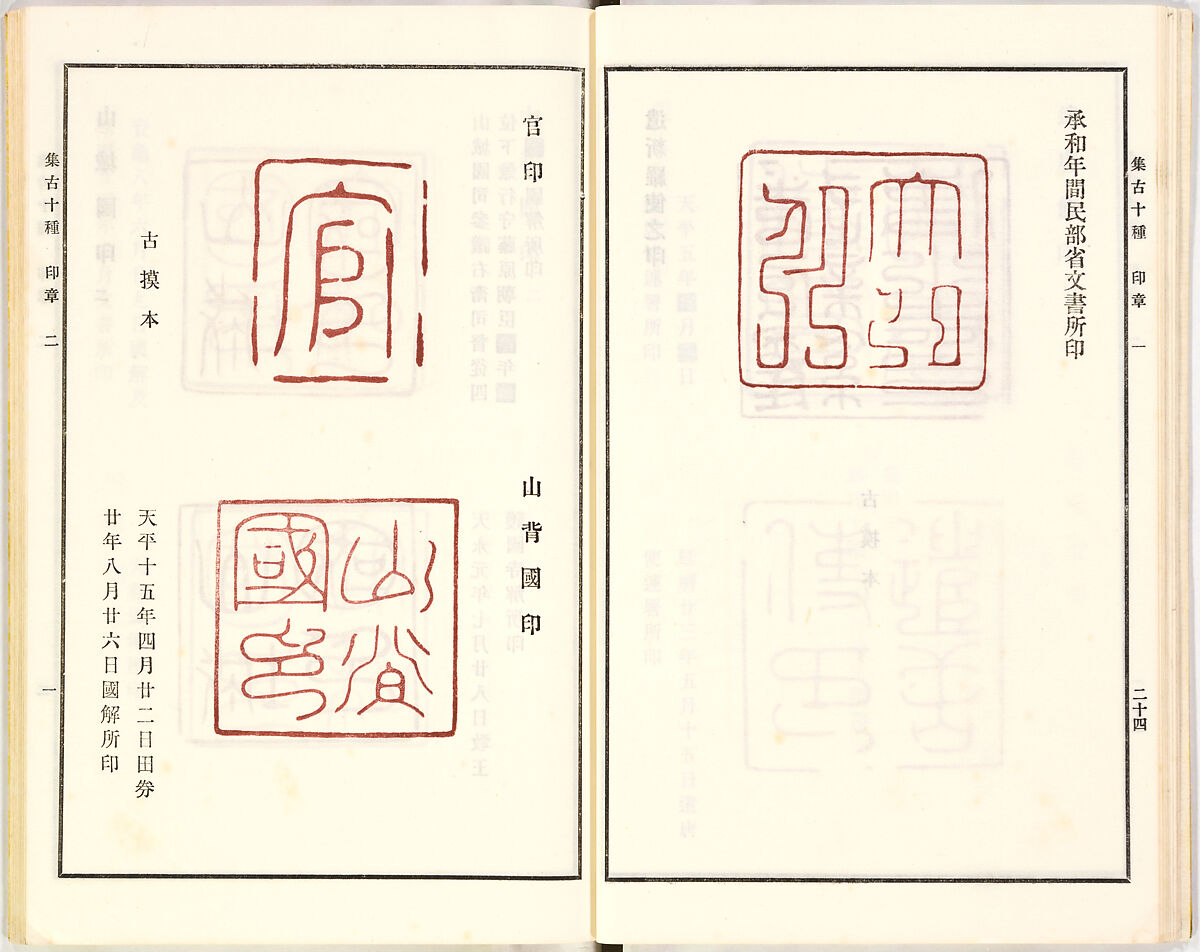 集古十種 印章 一
二十四
承和年間民部省文書所印
官印
官
古摸本
山背國印
山背
國印
天平十五年四月廿二日田劵
廿年八月廿六日國解所印
集古十種 印章 二
一